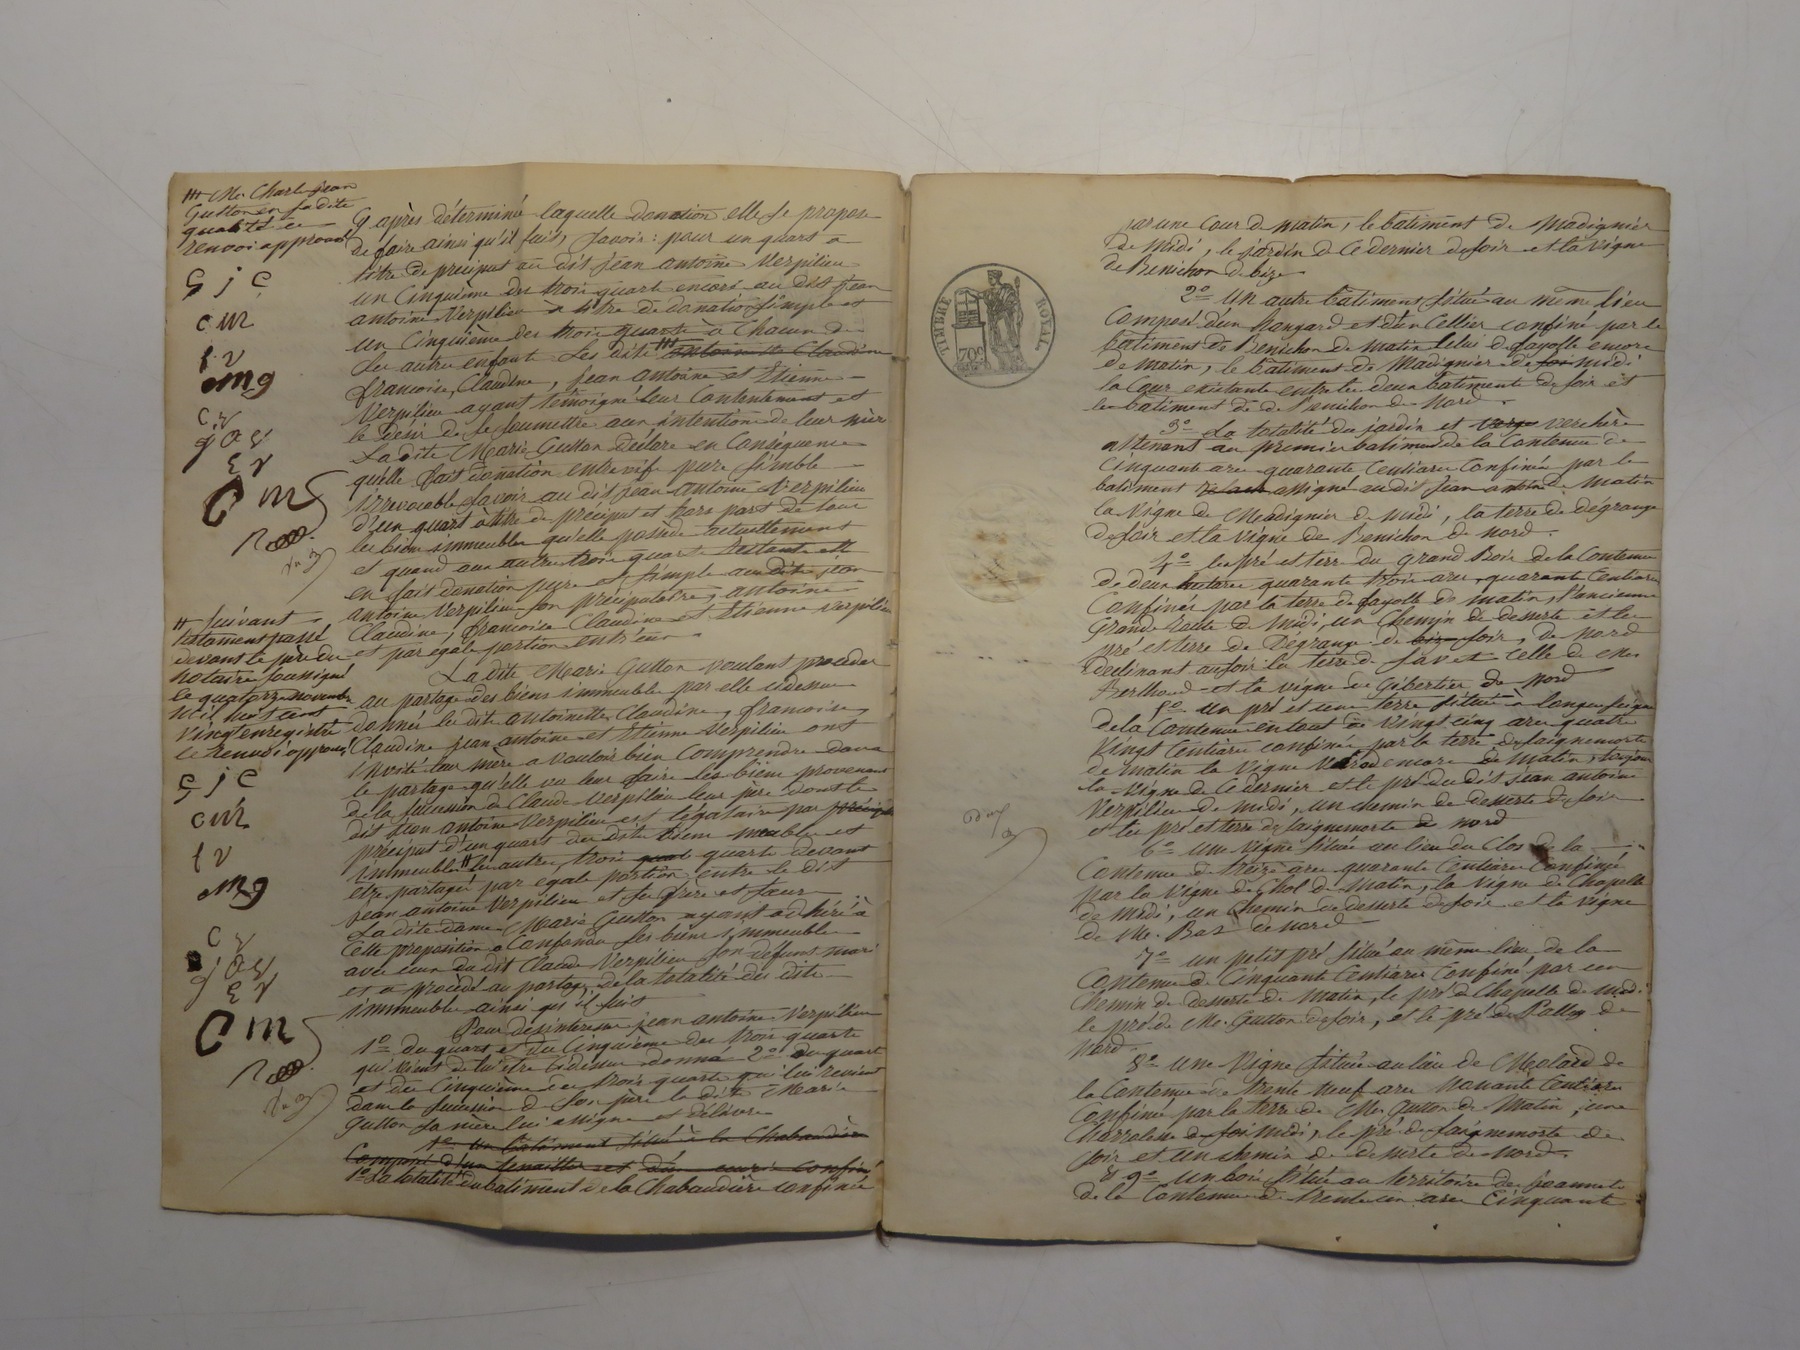 # Mr Charle jean
Gutton en sa dite
qualité ce
renvoi approuvé
G j C
C M
f v
MG
C v
j a v
E v
C M
Cy après déterminé laquelle donation elle se propose
de faire ainsi qu'il suit, savoir: pour un quart a
titre de preciput au dit jean antoine Verpilieu
un Cinquième des trois quarts encore au dit jean
antoine Verpilieu a titre de donation simple et
un Cinquième des trois quarts à Chacun de
ses autre enfant. Les dits # antoinette Claudine
francoise, Claudine, jean antoine et Etienne
Verpilieu ayant témoigné leur Contentement et
le désir de se soumettre aux intentions de leur mère
La dite Marie Gutton déclare en Conséquence
qu'elle fait donation entrevifs pure simple
irrevocable savoir au dit jean antoine Verpilieu
d'un quart à titre de préciput et hors part de tous
les biens immeubles qu'elle possède actuellement
et quand aux autre trois quarts restants elle
en fait donation pure et simple aux dits jean
antoine Verpilieu son préciputaire, antoine
Claudine, francoise Claudine et Etienne Verpilieu
et par egale portion entr'eux.
# suivant
testament passé
devant le père du
notaire soussigné
le quatorze novembre
mil huit cent
vingt enregistré
le renvoi approuvé
G j C
C M
f v
MG
C v
j a v
E v
C M
La dite Marie Gutton voulant proceder
au partage des biens immeubles par elle cidessus
donnés les dits antoinette Claudine, francoise
Claudine jean antoine et Etienne Verpilieu ont
invité leur mère a vouloir bien Comprendre dans
le partage qu'elle va leur faire les biens provenant
de la succession de Claude Verpilieu leur père dont le
dit jean antoine Verpilieu est légataire par préciput
preciput d'un quart des dits biens meubles et
immeubles # les autres trois quart quarts devant
etre partagés par egale portion entre le dit
jean antoine Verpilieu et ses frere et sœurs
La dite dame Marie Gutton ayant adhéré à
Cette proposition a Confondu ses biens immeubles
avec ceux du dit Claude Verpilieu son défunt mari
et a procédé au partage de la totalité des dits
immeubles ainsi qu'il suit
Pour désinteresser jean antoine Verpilieu
1o du quart et du Cinquième des trois quarts
qui vient de lui être cidessus donné 2o du quart
et du Cinquième des trois quarts qui lui revient
dans la succession de son père la dite Marie
Gutton sa mère lui assigne et délivre
1o un batiment situé à la Chabaudière
Composé d'un fenailler et d'une ecurie confiné
1o La totalité du batiment de la Chabaudière confiné
TIMBRE ROYAL
70c
par une Cour de matin, le batiment de Madignier
de Midi, le jardin de Ce dernier de soir et la vigne
de Benichon de bize
2o Un autre batiment situé au même lieu
Composé d'un hangard et d'un Cellier confiné par le
batiment de Benichon de matin celui de fayolle encore
de matin, le batiment de Madignier de soir midi
la Cour existante entre les deux batiments de soir et
le batiment de Benichon de Nord.
3o La totalité du jardin et verger verchère
attenant au premier batiment de la Contenue de
Cinquante ares quarante Centiares Confinée par le
batiment assigné au dit jean antoine de Matin
la vigne de Madignier de midi, la terre de dégrange
de soir et la vigne de Benichon de nord.
4o les pré et terre du grand Bois de la Contenue
de deux hectares quarante trois ares quarante Centiares
Confinés par la terre de fayolle de matin, l'ancienne
Grande route de Midi, un Chemin de desserte et les
pré et terre de Dégrange de bize soir, de nord
declinant au soir la terre de favet celle de Mr
Berthoud et la vigne de Gibertier de nord
5o un pré et une terre située à longue seigne
de la Contenue en tout de vingt cinq ares quatre
Vingt Centiares confinée par la terre de saignemorte
de matin la vigne encore de Matin, toujours
la vigne de Ce dernier et le pré du dit jean antoine
Verpilieu de midi, un chemin de desserte de soir
et les pré et terre de saignemorte de nord
6o une vigne située au lieu du Clos de la
Contenue de treize ares quarante Centiares Confinée
par la vigne de Chol de matin, la vigne de Chapelle
de Midi, un Chemin de desserte de soir et la vigne
de Mr. Baz de nord
7o un petit pré situé au même lieu de la
Contenue de Cinquante Centiares Confiné par un
Chemin de desserte de Matin, le pré de Chapelle de midi
le pré de Mr. Gutton de soir, et le pré de Pallay de
Nord.
8o une vigne située au lieu de Molard de
la Contenue de trente neuf ares novante Centiares
Confinée par la terre de Mr Gutton de Matin, une
Charreteire de soir midi, le pré de saignemorte de
soir et un chemin de desserte de nord.
8 9o un bois situé au territoire des joannets
de la Contenue de trente un ares Cinquante